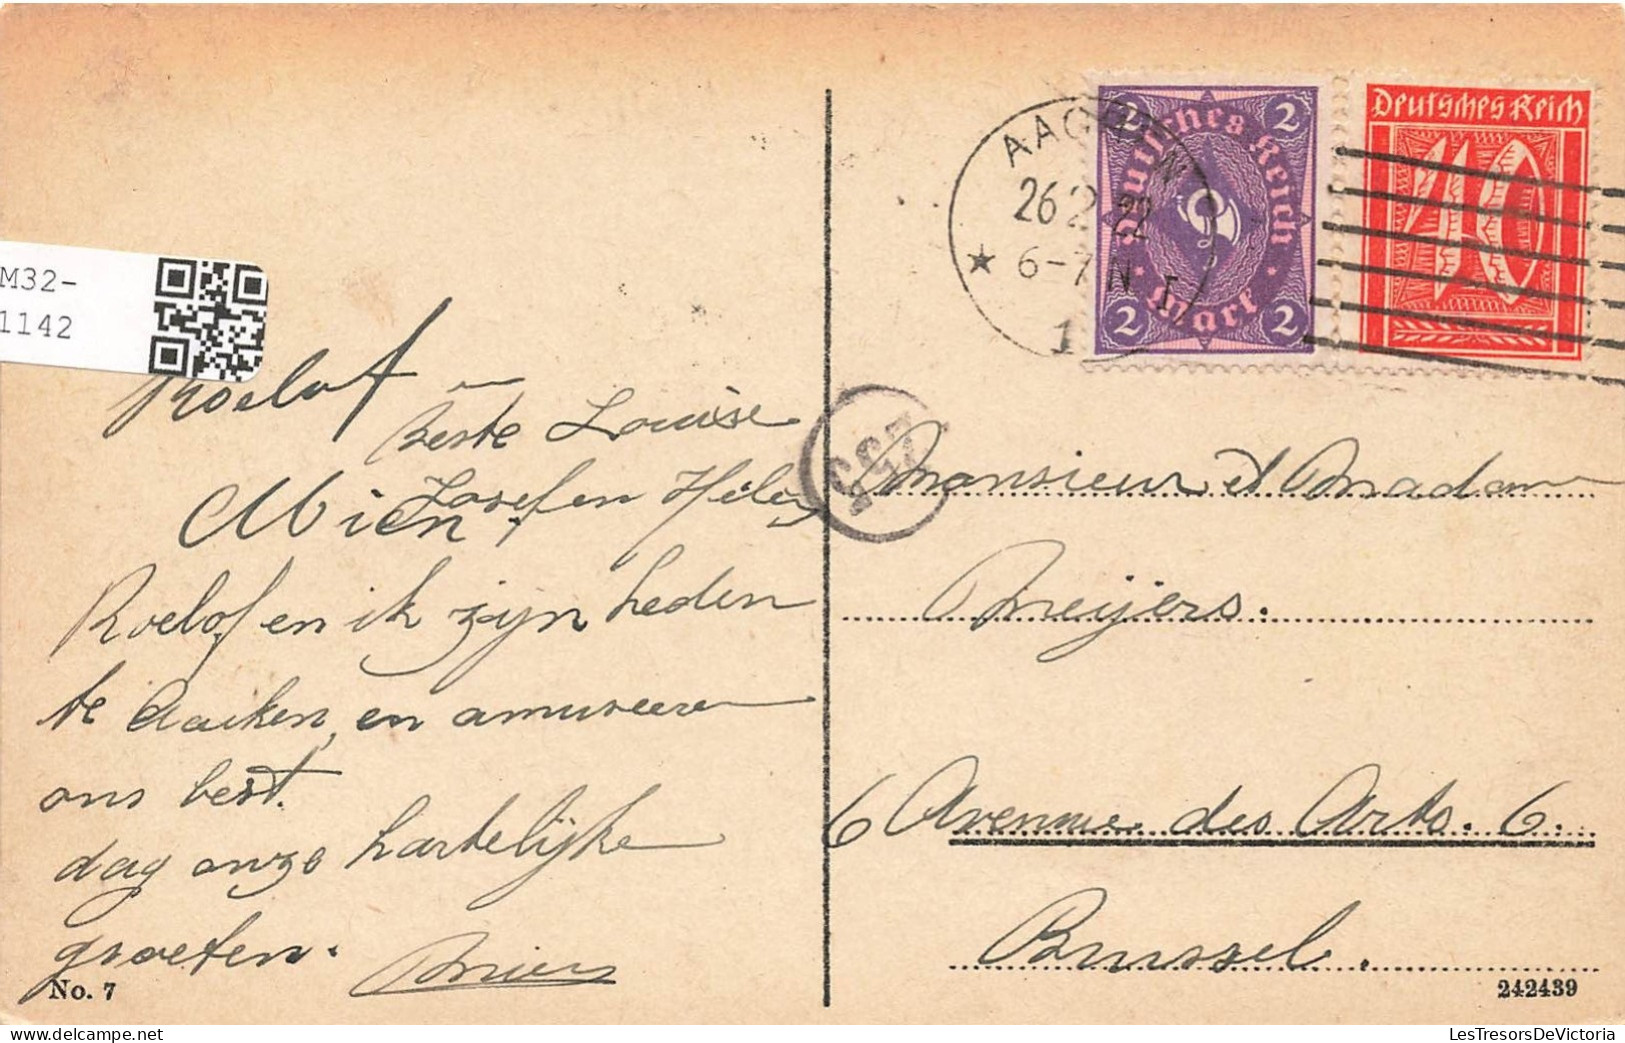 M32-
1142
Roelof
Beste Louise
Mien
Josef en
Roelof en ik zijn heden
te Aaiken, en amuseeren
ons best.
dag onze hartelijke
groeten.
No. 7
AACHEN
26.2.22
6-7 N
1
2 2
Deutsches Reich
Mark
2 2
Deutsches Reich
40
Monsieur et Madame
Meijers.
6 Avenue des Arts. 6.
Brussel.
242439
LesTresorsDeVictoria